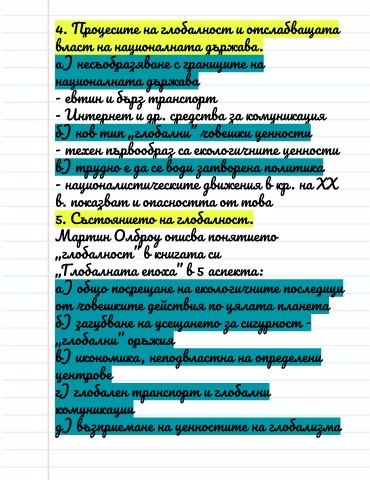 4. Процесите на глобалност и отслабващата
власт на националната държава.
а) несъобразяване с границите на
националната държава
- евтин и бърз транспорт
- Интернет и др. средства за комуникация
б) нов тип „глобални" човешки ценности
- техен първообраз са екологичните ценности
в) трудно е да се води затворена политика
- националистическите движения в кр. на XX
в. показват и опасността от това
5. Състоянието на глобалност.
Мартин Олброу описва понятието
„глобалност" в книгата си
„Глобалната епоха" в 5 аспекта:
а) общо посрещане на екологичните последици
от човешките действия по цялата планета
б) загубване на усещането за сигурност -
„глобални" оръжия
в) икономика, неподвластна на определени
центрове
г) глобален транспорт и глобални
комуникации
д) възприемане на ценностите на глобализма